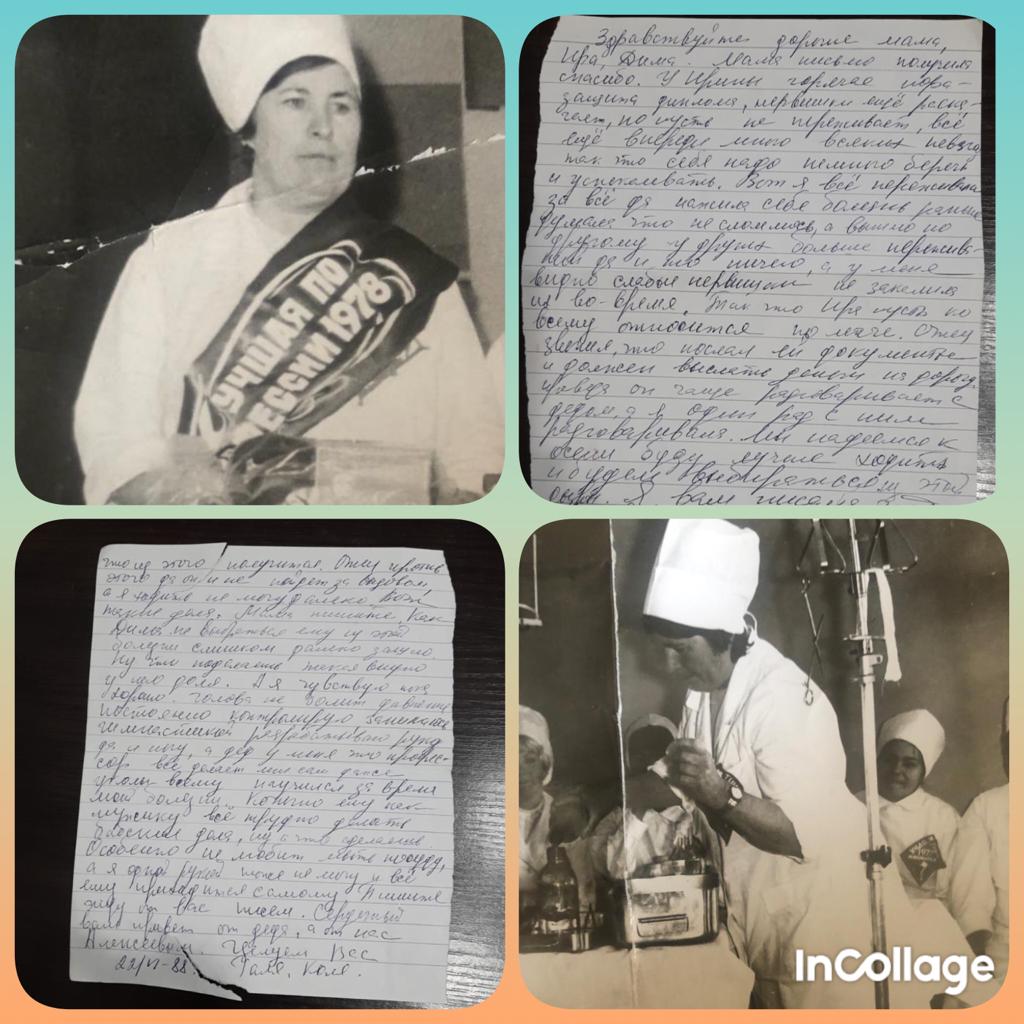 УЧШАЯ ПО
ЕССИИ 1978
Здравствуйте дорогие мама,
Ира, Дима. Мама письмо получила
спасибо. У Ирины горячая пора-
защита диплома, нервишки ещё
но пусть не переживает, всё
ещё впереди много всяких
так что себя надо немного беречь
и успокаивать. Вот я всё переживала
за всё да нажила себе болезнь раньше
думала что не сломлюсь, а вышло по
другому у других больше пережива-
ний да и то ничего, а у меня
видно слабые нервишки не закалила
их во-время. Так что Ира пусть ко
всему относится по легче. Отец
звонил, что послал ей документы
и должен выслать деньги на дорогу,
правда он чаще разговаривает с
дедом, а я один раз с ним
разговаривала. Мы надеемся к
осени буду лучше ходить
и будем выбираться из этой
Я вам писала
что из этого получится. Отец против
этого да он и не пойдет за
а я ходить не могу далеко Вот
такие дела. Мама пишите, как
Дима не выбраться ему из этой
болезни слишком далеко зашло.
Ну что поделаешь такая видно
у него доля. А я чувствую пока
хорошо. Голова не болит давление
постоянно контролирую занимаюсь
гимнастикой разрабатываю руку
да и ногу, а дед у меня это профес-
сор всё делает мне сам даже
уколы всему научился за время
моей болезни. Конечно ему как
мужику всё трудно делать
женские дела, ну а что сделаешь
Особенно не любит мыть посуду,
а я одной рукой тоже не могу и всё
ему приходится самому. Пишите
жду от вас писем. Сердечный
вам привет от деда, а от нас
Алексеевым. Целуем Вас
22/VI-88. Галя, Коля.
InCollage